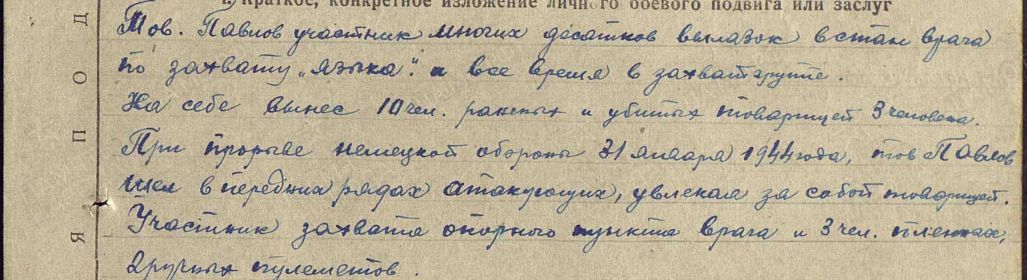 1. Краткое, конкретное изложение личного боевого подвига или заслуг
Тов. Павлов участник многих десятков вылазок в стан врага
по захвату „языка". и все время в захватгруппе.
На себе вынес 10 чел. раненых и убитых товарищей 3 человека.
При прорыве немецкой обороны 31 января 1944 года, тов Павлов
шел в передних рядах атакующих, увлекая за собой товарищей.
Участник захвата опорного пункта врага и 3 чел. пленных,
2 ручных пулеметов.
Я П О Д